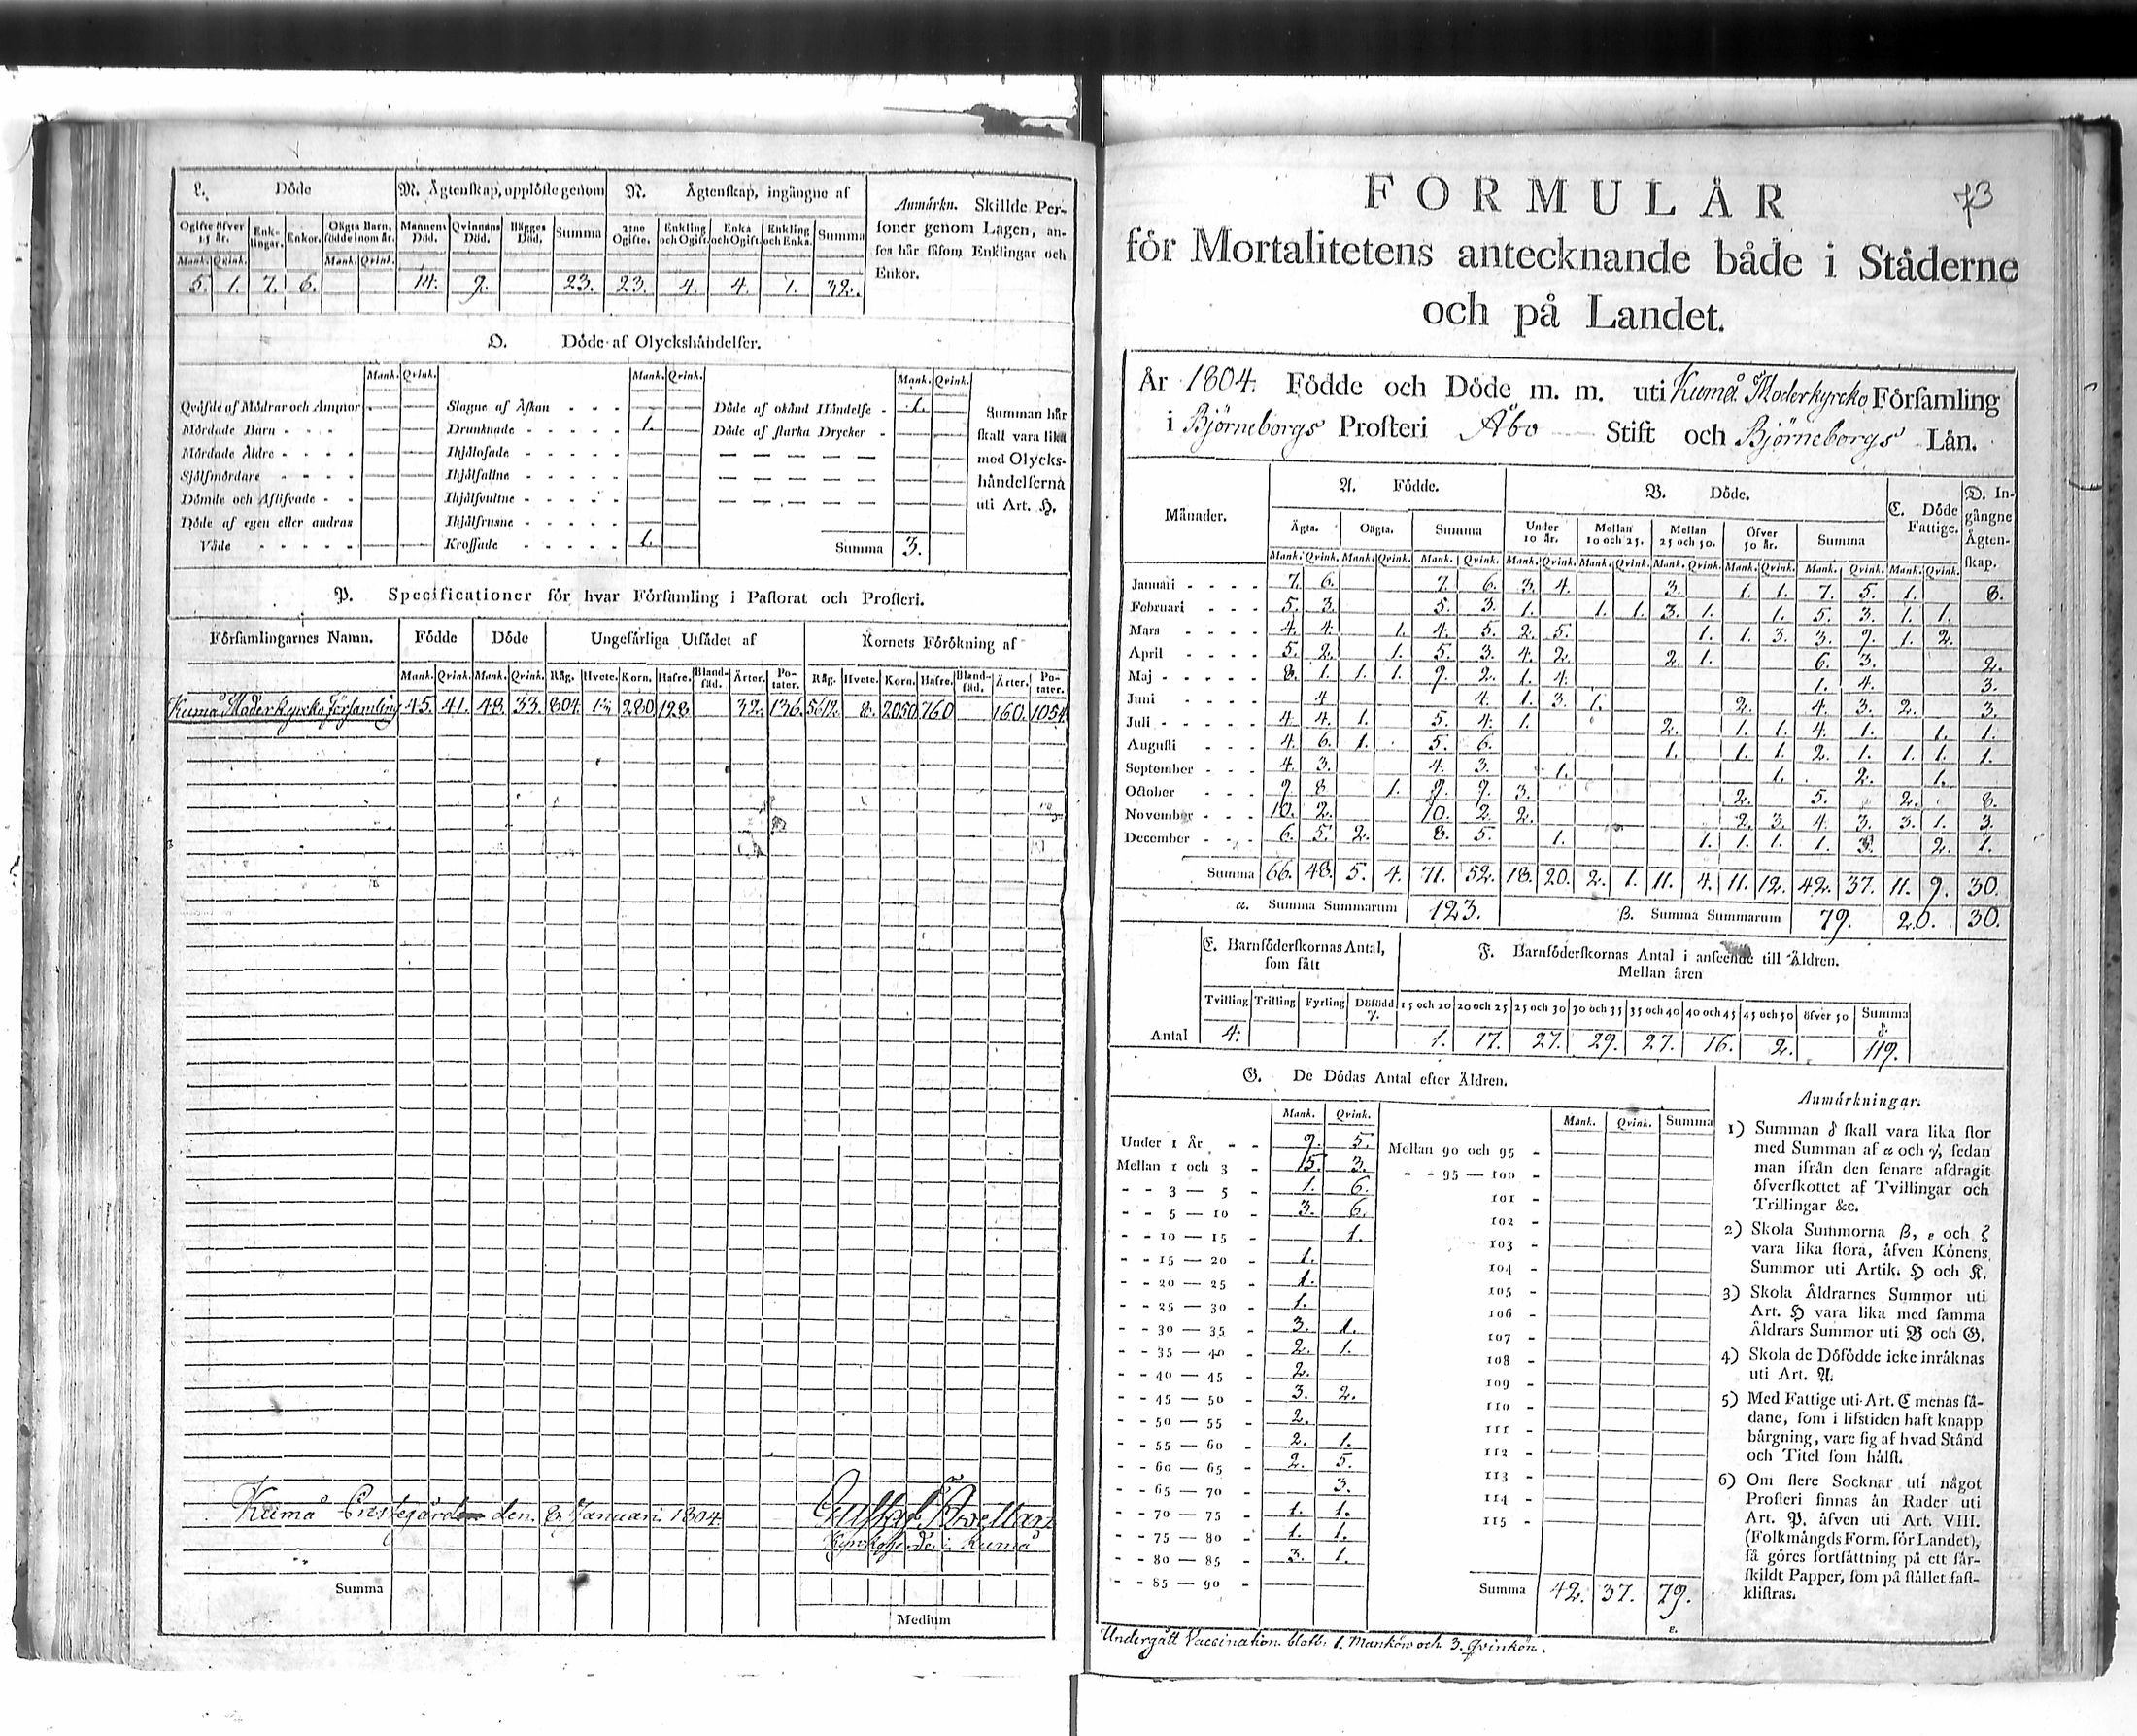 L. Döde
M. Ägtenskap, upplöste genom
N. Ägtenskap, ingångne af
Anmärkn. Skillde Per-
soner genom Lagen, an-
ses här såsom Enklingar och
Enkor.
Ogifte öfver 15 år. Enk-lingar. Enkor. Oägta Barn, födde inom år. Mannens Död. Qvinnans Död. Bägges Död. Summa 2:ne Ogifte. Enkling och Ogift. Enka och Ogift. Enkling och Enka. Summa
Mank. Qvink. Mank. Qvink.
5. 1. 7. 6. 14. 9. 23. 23. 4. 4. 1. 32.
O. Döde af Olyckshändelser.
Mank. Qvink. Mank. Qvink. Mank. Qvink.
Qväfde af Mödrar och Ammor Slagne af Åskan Döde af okänd Händelse 1.
Mördade Barn Drunknade 1. Döde af starka Drycker
Mördade Äldre Ihjälosade
Sjelfmördare Ihjälfallne
Dömde och Aflifvade Ihjälsvultne
Döde af egen eller andras Ihjälfrusne
Våde Krossade 1. Summa 3.
Summan här
skall vara lika
med Olycks-
händelserna
uti Art. H.
P. Specificationer för hvar Församling i Pastorat och Prosteri.
Församlingarnes Namn. Födde Döde Ungefärliga Utsädet af Kornets Förökning af
Mank. Qvink. Mank. Qvink. Råg. Hvete. Korn. Hafre. Bland-säd. Ärter. Po-tater. Råg. Hvete. Korn. Hafre. Bland-säd. Ärter. Po-tater.
Kumå Moderkyrko församling 45. 41. 48. 33. 804. 280 128 32. 136. 8. 2050 760 160. 1054
Kumå Prestegård den 8 Januari 1804.
Kyrkoherde i Kumå
Summa
Medium
73
FORMULÄR
för Mortalitetens antecknande både i Städerne
och på Landet.
År 1804. Födde och Döde m. m. uti Kumå Moderkyrko Församling
i Björneborgs Prosteri Åbo Stift och Björneborgs Län.
Månader. A. Födde. B. Döde. C. Döde Fattige. D. In-gångne Ägten-skap.
Ägta. Oägta. Summa Under 10 år. Mellan 10 och 25. Mellan 25 och 50. Öfver 50 år. Summa
Mank. Qvink. Mank. Qvink. Mank. Qvink. Mank. Qvink. Mank. Qvink. Mank. Qvink. Mank. Qvink. Mank. Qvink. Mank. Qvink.
Januari 7. 6. 7. 6. 3. 4. 3. 1. 1. 7. 5. 1. 8.
Februari 5. 3. 5. 3. 1. 1. 1. 3. 1. 1. 5. 3. 1. 1.
Mars 4. 4. 1. 4. 5. 2. 5. 1. 1. 3. 3. 9. 1. 2.
April 5. 2. 1. 5. 3. 4. 2. 2. 1. 6. 3. 2.
Maj 8. 1. 1. 1. 9. 2. 1. 4. 1. 4. 3.
Juni 4 4. 1. 3. 1. 2. 4. 3. 2. 3.
Juli 4. 4. 1. 5. 4. 1. 2. 1. 1. 4. 1. 1. 1.
Augusti 4. 6. 1. 5. 6. 1. 1. 1. 2. 1. 1. 1. 1.
September 4. 3. 4. 3. 1. 1. 2. 1.
October 9. 8 1. 9. 9. 3. 2. 5. 2. 8.
November 10. 2. 10. 2. 2. 2. 3. 4. 3. 3. 1. 3.
December 6. 5. 2. 8. 5. 1. 1. 1. 1. 1. 3. 2. 1.
Summa 66. 48. 5. 4. 71. 52. 18. 20. 2. 1. 11. 4. 11. 12. 42. 37. 11. 9. 30.
α. Summa Summarum 123. β. Summa Summarum 79. 20. 30.
E. Barnföderskornas Antal, som fått
F. Barnföderskornas Antal i anseende till Åldren.
Mellan åren
Tvilling Trilling Fyrling Döfödd γ. 15 och 20 20 och 25 25 och 30 30 och 35 35 och 40 40 och 45 45 och 50 öfver 50 Summa δ.
Antal 4. 1. 17. 27. 29. 27. 16. 2. 119.
G. De Dödas Antal efter Åldren.
Mank. Qvink. Mank. Qvink. Summa
Under 1 År 9. 5. Mellan 90 och 95
Mellan 1 och 3 15. 3. 95 — 100
3 — 5 1. 6. 101
5 — 10 3. 6. 102
10 — 15 1. 103
15 — 20 1. 104
20 — 25 1. 105
25 — 30 1. 106
30 — 35 3. 1. 107
35 — 40 2. 1. 108
40 — 45 2. 109
45 — 50 3. 2. 110
50 — 55 2. 111
55 — 60 2. 1. 112
60 — 65 2. 5. 113
65 — 70 3. 114
70 — 75 1. 1. 115
75 — 80 1. 1.
80 — 85 3. 1.
85 — 90 Summa 42. 37. 79.
ε.
Anmärkningar.
1) Summan δ skall vara lika stor
med Summan af α och γ, sedan
man ifrån den senare afdragit
öfverskottet af Tvillingar och
Trillingar &c.
2) Skola Summorna β, ε och ζ
vara lika stora, äfven Könens
Summor uti Artik. H och K.
3) Skola Åldrarnes Summor uti
Art. H vara lika med samma
Åldrars Summor uti B och G.
4) Skola de Döfödde icke inräknas
uti Art. A.
5) Med Fattige uti Art. C menas så-
dane, som i lifstiden haft knapp
bärgning, vare sig af hvad Stånd
och Titel som hälst.
6) Om flere Socknar uti något
Prosteri finnas än Rader uti
Art. P, äfven uti Art. VIII.
(Folkmängds Form. för Landet),
så göres fortsättning på ett sär-
skildt Papper, som på stället fast-
klistras.
Undergått Vaccination blott 1. Mankön och 3. Qvinkön.